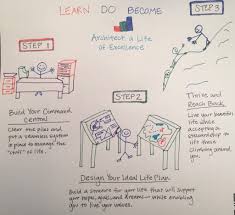 LEARN DO BECOME
Architect a Life
of Excellence
STEP 1
Build Your Command
Central
Clear out piles and
put a seamless system
in place to manage the
"chaos" of life.
STEP 2
Design Your Ideal Life Plan
Build a structure for your life that will support
your hopes, goals, and dreams - while enabling
you to live your values.
STEP 3
Thrive and
Reach Back
Live your
life while
accepting a
stewardship
to lift those
climbing around
you.